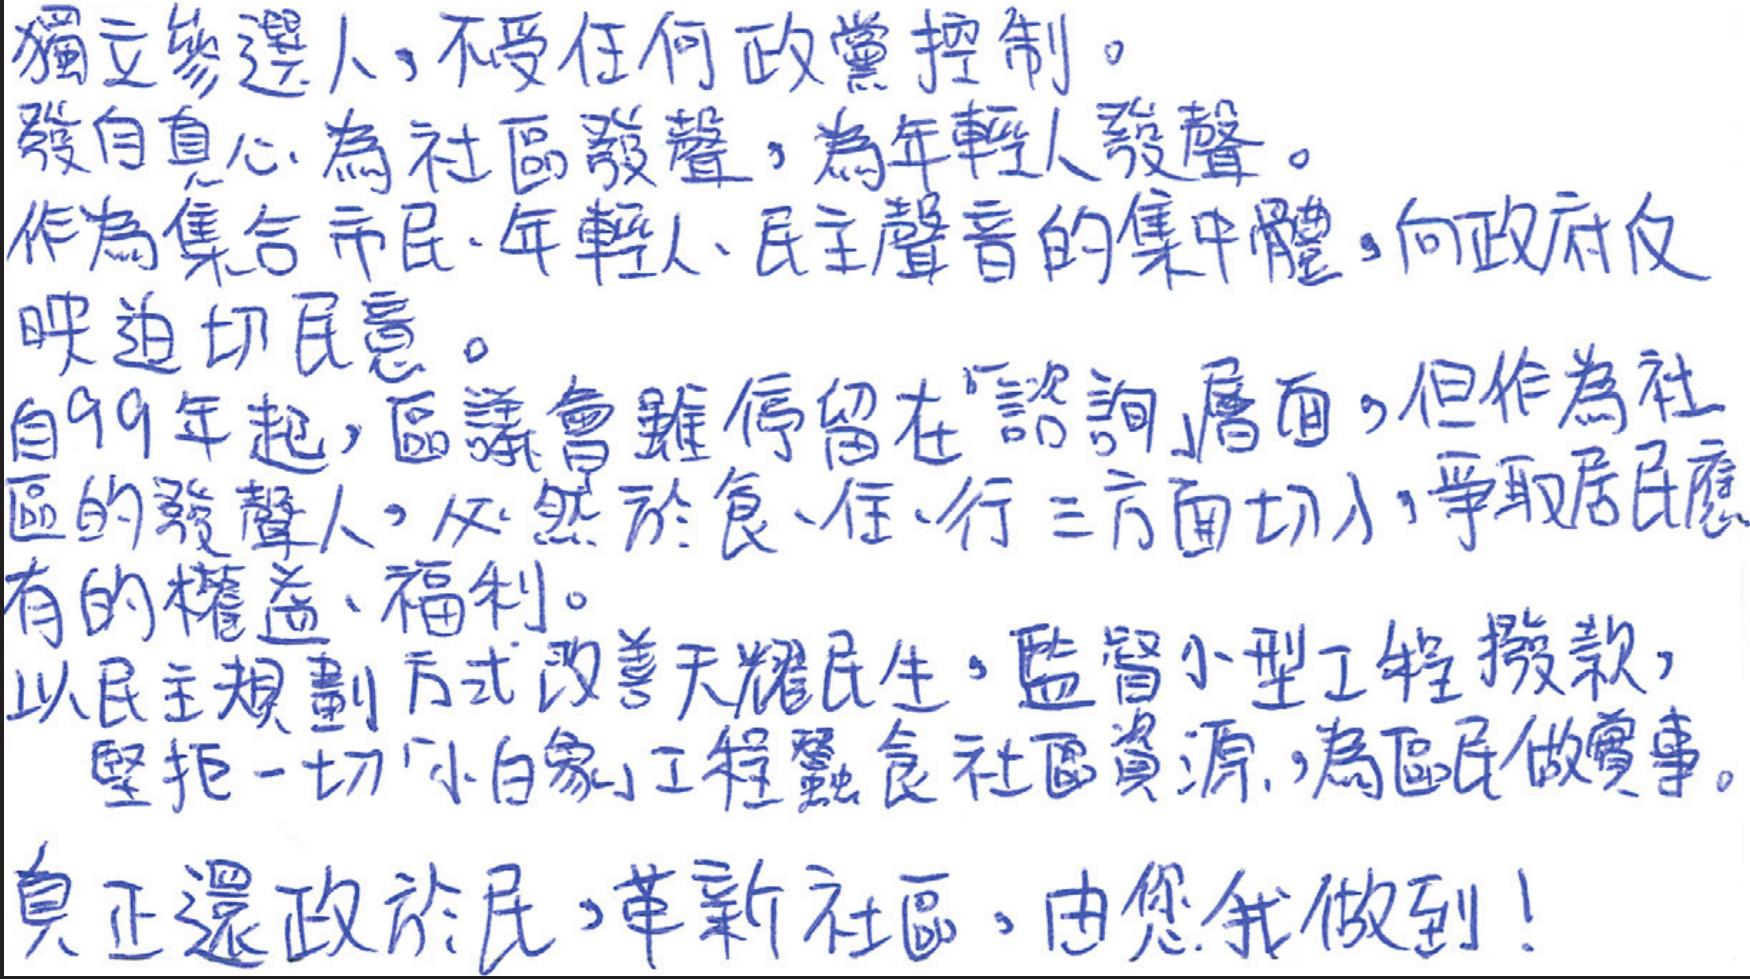 獨立參選人，不受任何政黨控制。
發自真心為社區發聲，為年輕人發聲。
作為集合市民、年輕人、民主聲音的集中體，向政府反
映迫切民意。
自99年起，區議會雖停留在「諮詢」層面，但作為社
區的發聲人，必然於食、住、行三方面切入，爭取居民應
有的權益、福利。
以民主規劃方式改善天耀民生，監督小型工程撥款，
堅拒一切「小白象」工程蠶食社區資源，為區民做實事。
真正還政於民，革新社區，由您我做到！